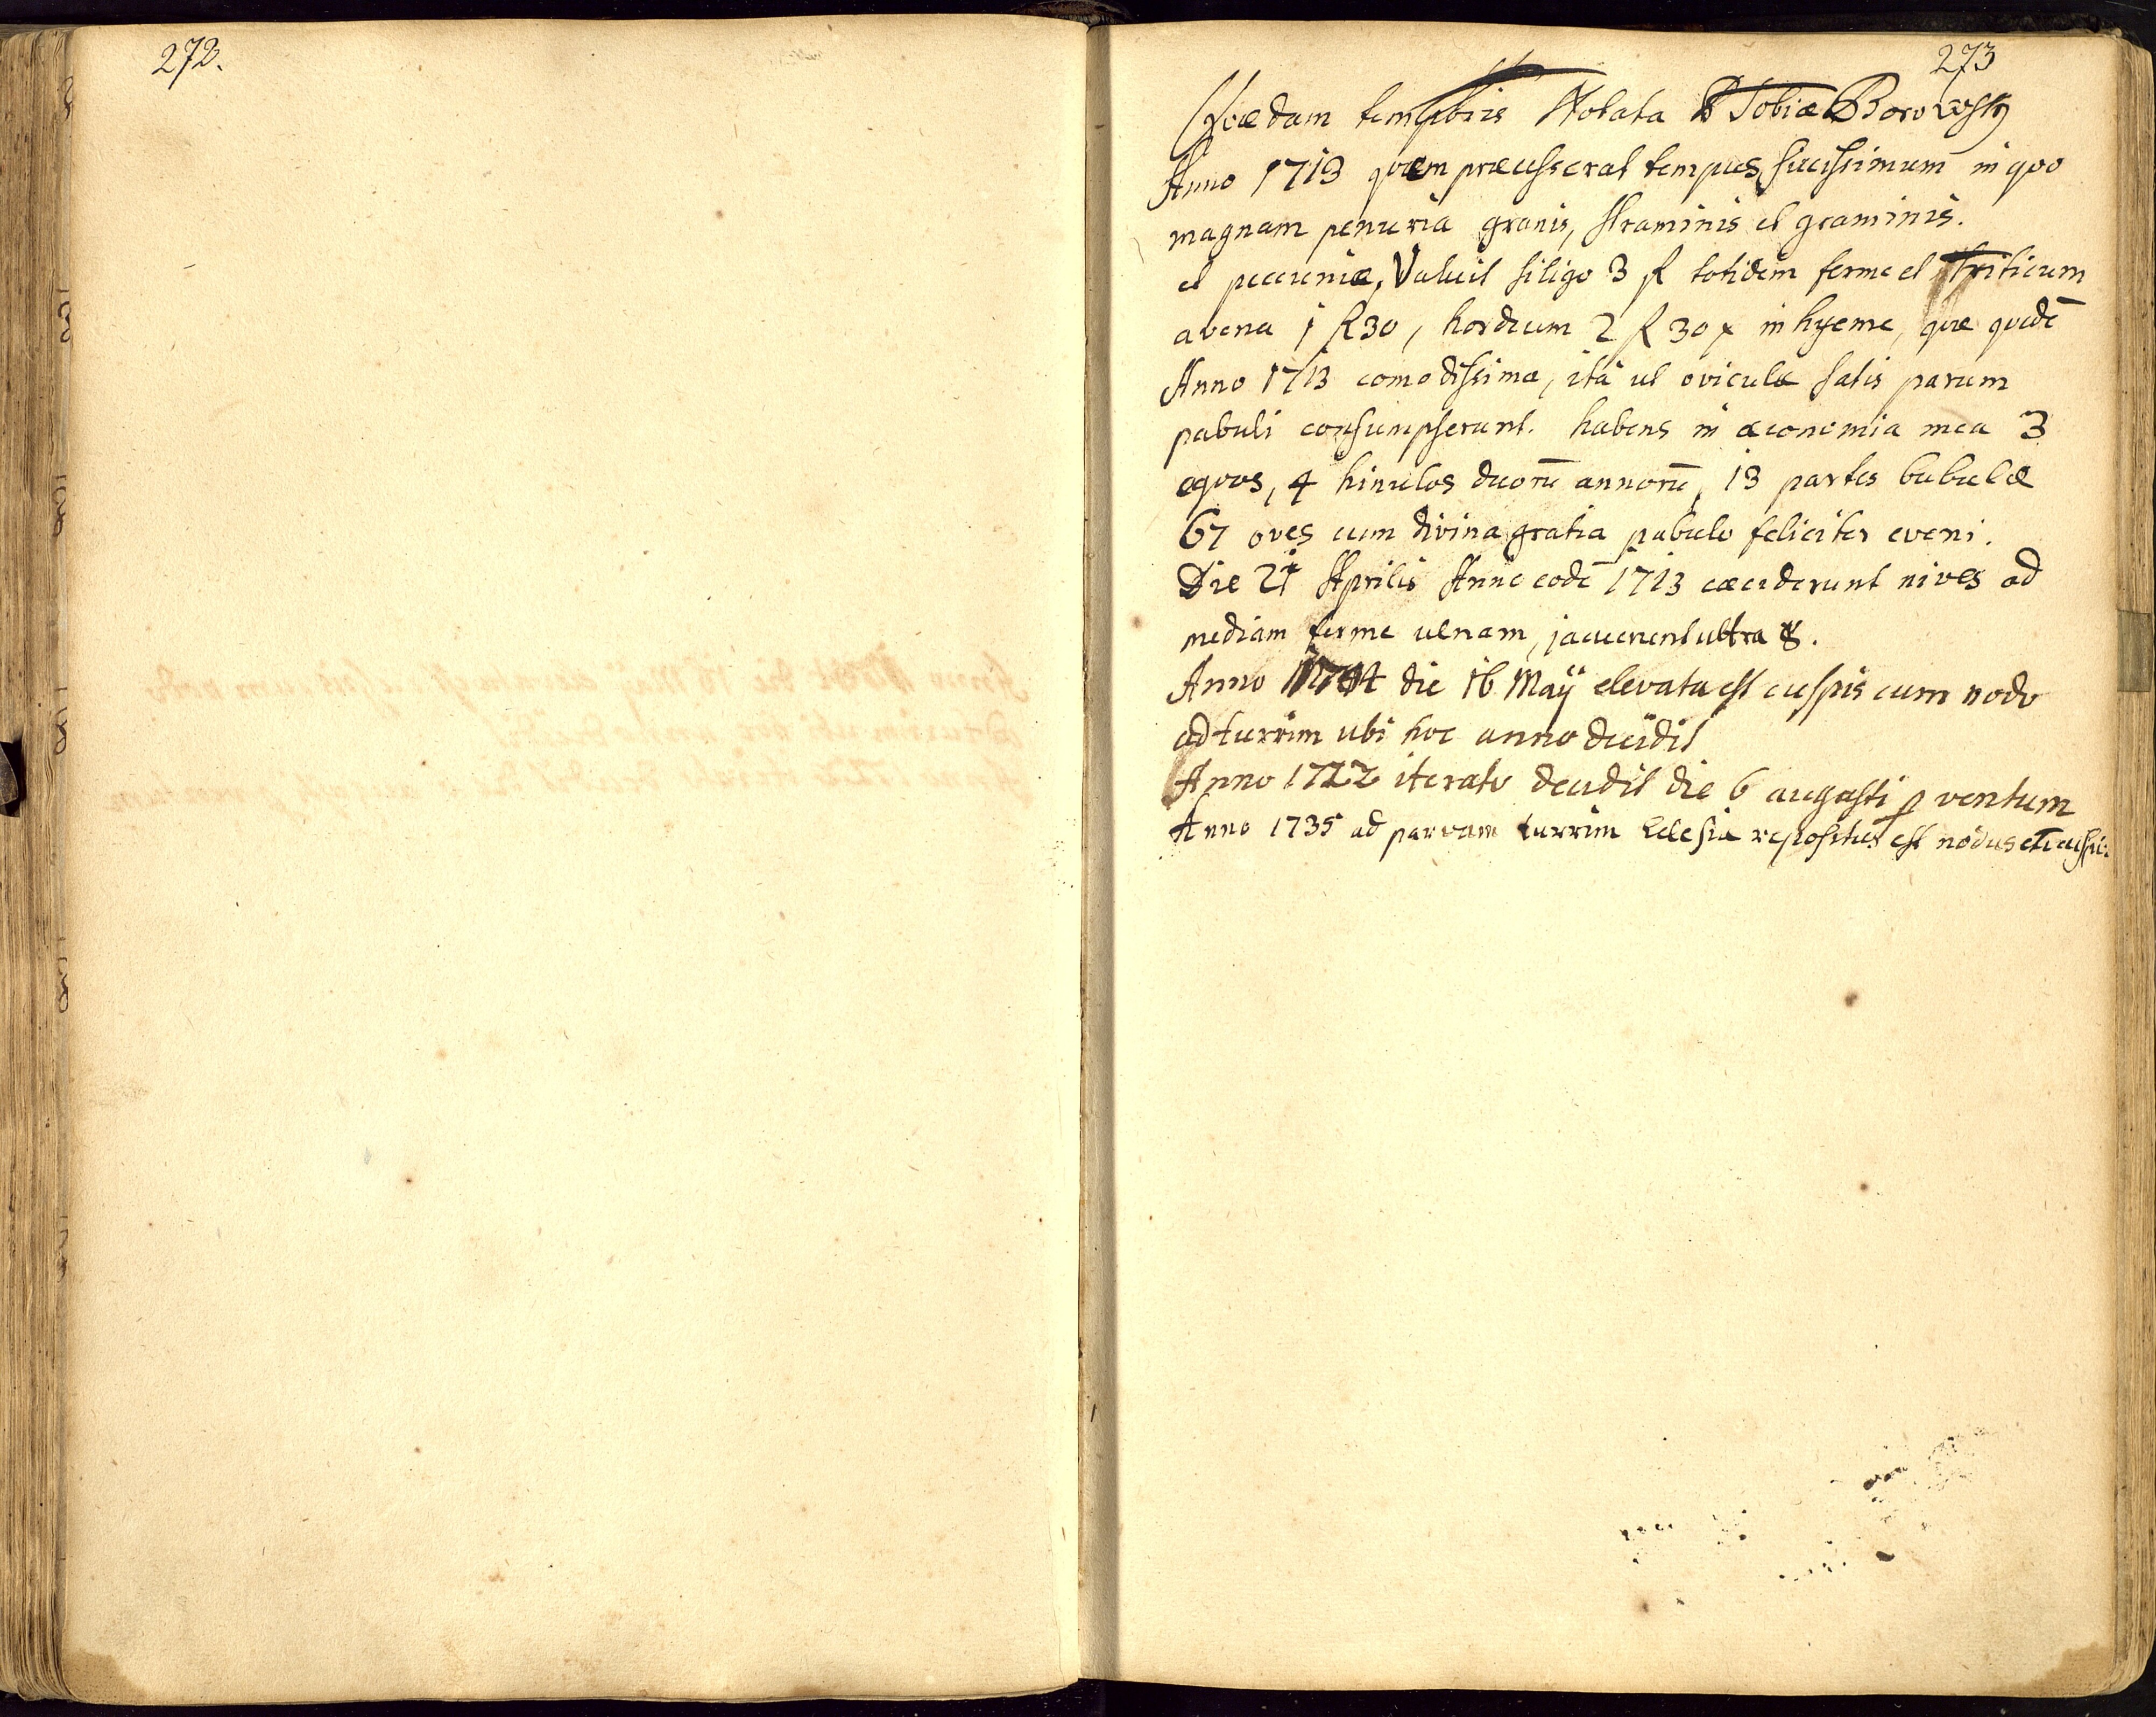 272.
273
Quædam temporis Notata P Tobiæ Borowsky
Anno 1713 quem præcesserat tempus siccissimum in quo
magnam penuria granis, straminis et graminis.
et pecuniæ, Valuit siligo 3 f totidem ferme et triticum
avena 1 f 30, hordeum 2 f 30 x in hyeme, quæ quidē
Anno 1713 comodissima, ità ut oviculæ satis parum
pabuli consumpserunt. habens in æconomia mea 3
equos, 4 hinulos duorū annorū, 13 partes bubulæ
67 oves cum divina gratia pabulo feliciter eveni.
Die 21 Aprilis Anno eodē 1713 cæciderunt nives ad
mediam ferme ulnam, jacuerunt ultra 8.
Anno die 16 Maÿ elevata est cuspis cum nodo
ad turrim ubi hoc anno decidit
Anno 1722 iterato decidit die 6 augusti p ventum
Anno 1735 ad parvam turrim Eclesiæ repositus est nodus et cuspis